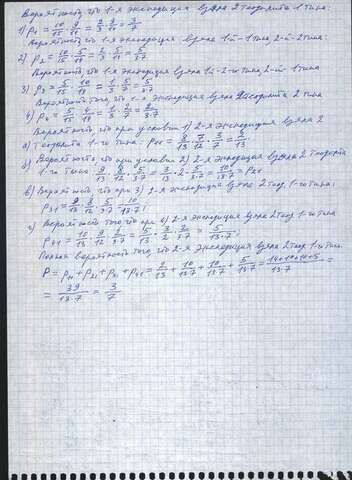 Вероятность, что 1-я экспедиция взяла 2 теодолита 1 типа:
1) P₁ = 10/15 · 9/14 = 2/3 · 9/14 = 3/7
Вероятность, что 1-я экспедиция взяла 1й-1 типа, 2-й-2 типа:
2) P₂ = 10/15 · 5/14 = 2/3 · 5/14 = 5/3·7
Вероятность что 1-я экспедиция взяла 1й-2-го типа, 2-й 1 типа
3) P₃ = 5/15 · 10/14 = 1/3 · 5/7 = 5/3·7
Вероятность того, что 1-я экспедиция взяла 2 теодолита 2 типа
4) P₄ = 5/15 · 4/14 = 2/3·7
Вероятность, что при условии 1) 2-я экспедиция взяла 2
а) теодолита 1-го типа: P₁₁ =
б) Вероятность, что при условии 2) 2-я экспедиция взяла 2 теодолита
1-го типа: 9/13 · 8/12 · 5/3·7 = = P₂₁
в) Вероятность что при 3) 2-я экспедиция взяла 2 теод. 1-го типа:
P₃₁ = 9/13 · 8/12 · 5/3·7 = 10/13·7;
г) Вероятность того что при 4) 2-я экспедиция взяла 2 теод 1-го типа
P₄₁ = 10/13 · 9/12 · 2/3·7 = = 5/13·7;
Полная вероятность того, что 2-я экспедиция взяла 2 теод. 1-го типа.
P = P₁₁ + P₂₁ + P₃₁ + P₄₁ = 2/13 + 10/13·7 + 10/13·7 + 5/13·7 = 14+10+10+5/13·7 =
= 39/13·7 = 3/7